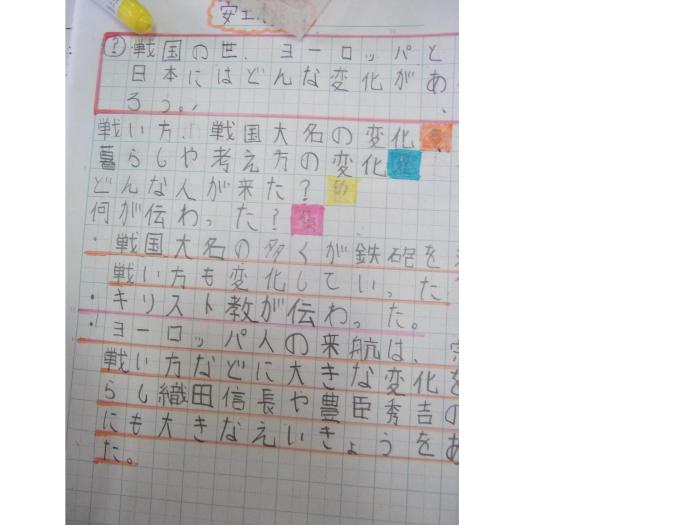 安土
? 戦国の世、ヨーロッパと
日本にはどんな変化があ
ろう。
戦い方、戦国大名の変化
暮らしや考え方の変化
どんな人が来た?
何が伝わった?
・戦国大名の多くが鉄砲を
戦い方も変化していった
・キリスト教が伝わった。
・ヨーロッパ人の来航は、
戦い方などに大きな変化を
らし織田信長や豊臣秀吉の
にも大きなえいきょうをあ
た。